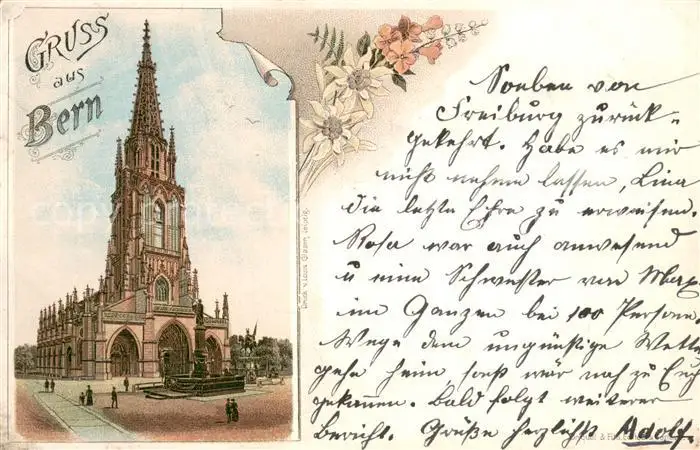 GRUSS
aus
Bern
Druck v. Louis Glaser, Leipzig.
Soeben von
Freiburg zurück-
gekehrt. Habe es mir
nicht nehmen lassen, Lina
die letzte Ehre zu erweisen.
Rosa war auch anwesend
u eine Schwester von Max,
im Ganzen bei 100 Personen,
Wege dem ungünstige Wette
gehe heim sonst wär noch zu Euch
gekommen. Bald folgt weiterer
Bericht. Grüße herzlichst Adolf.